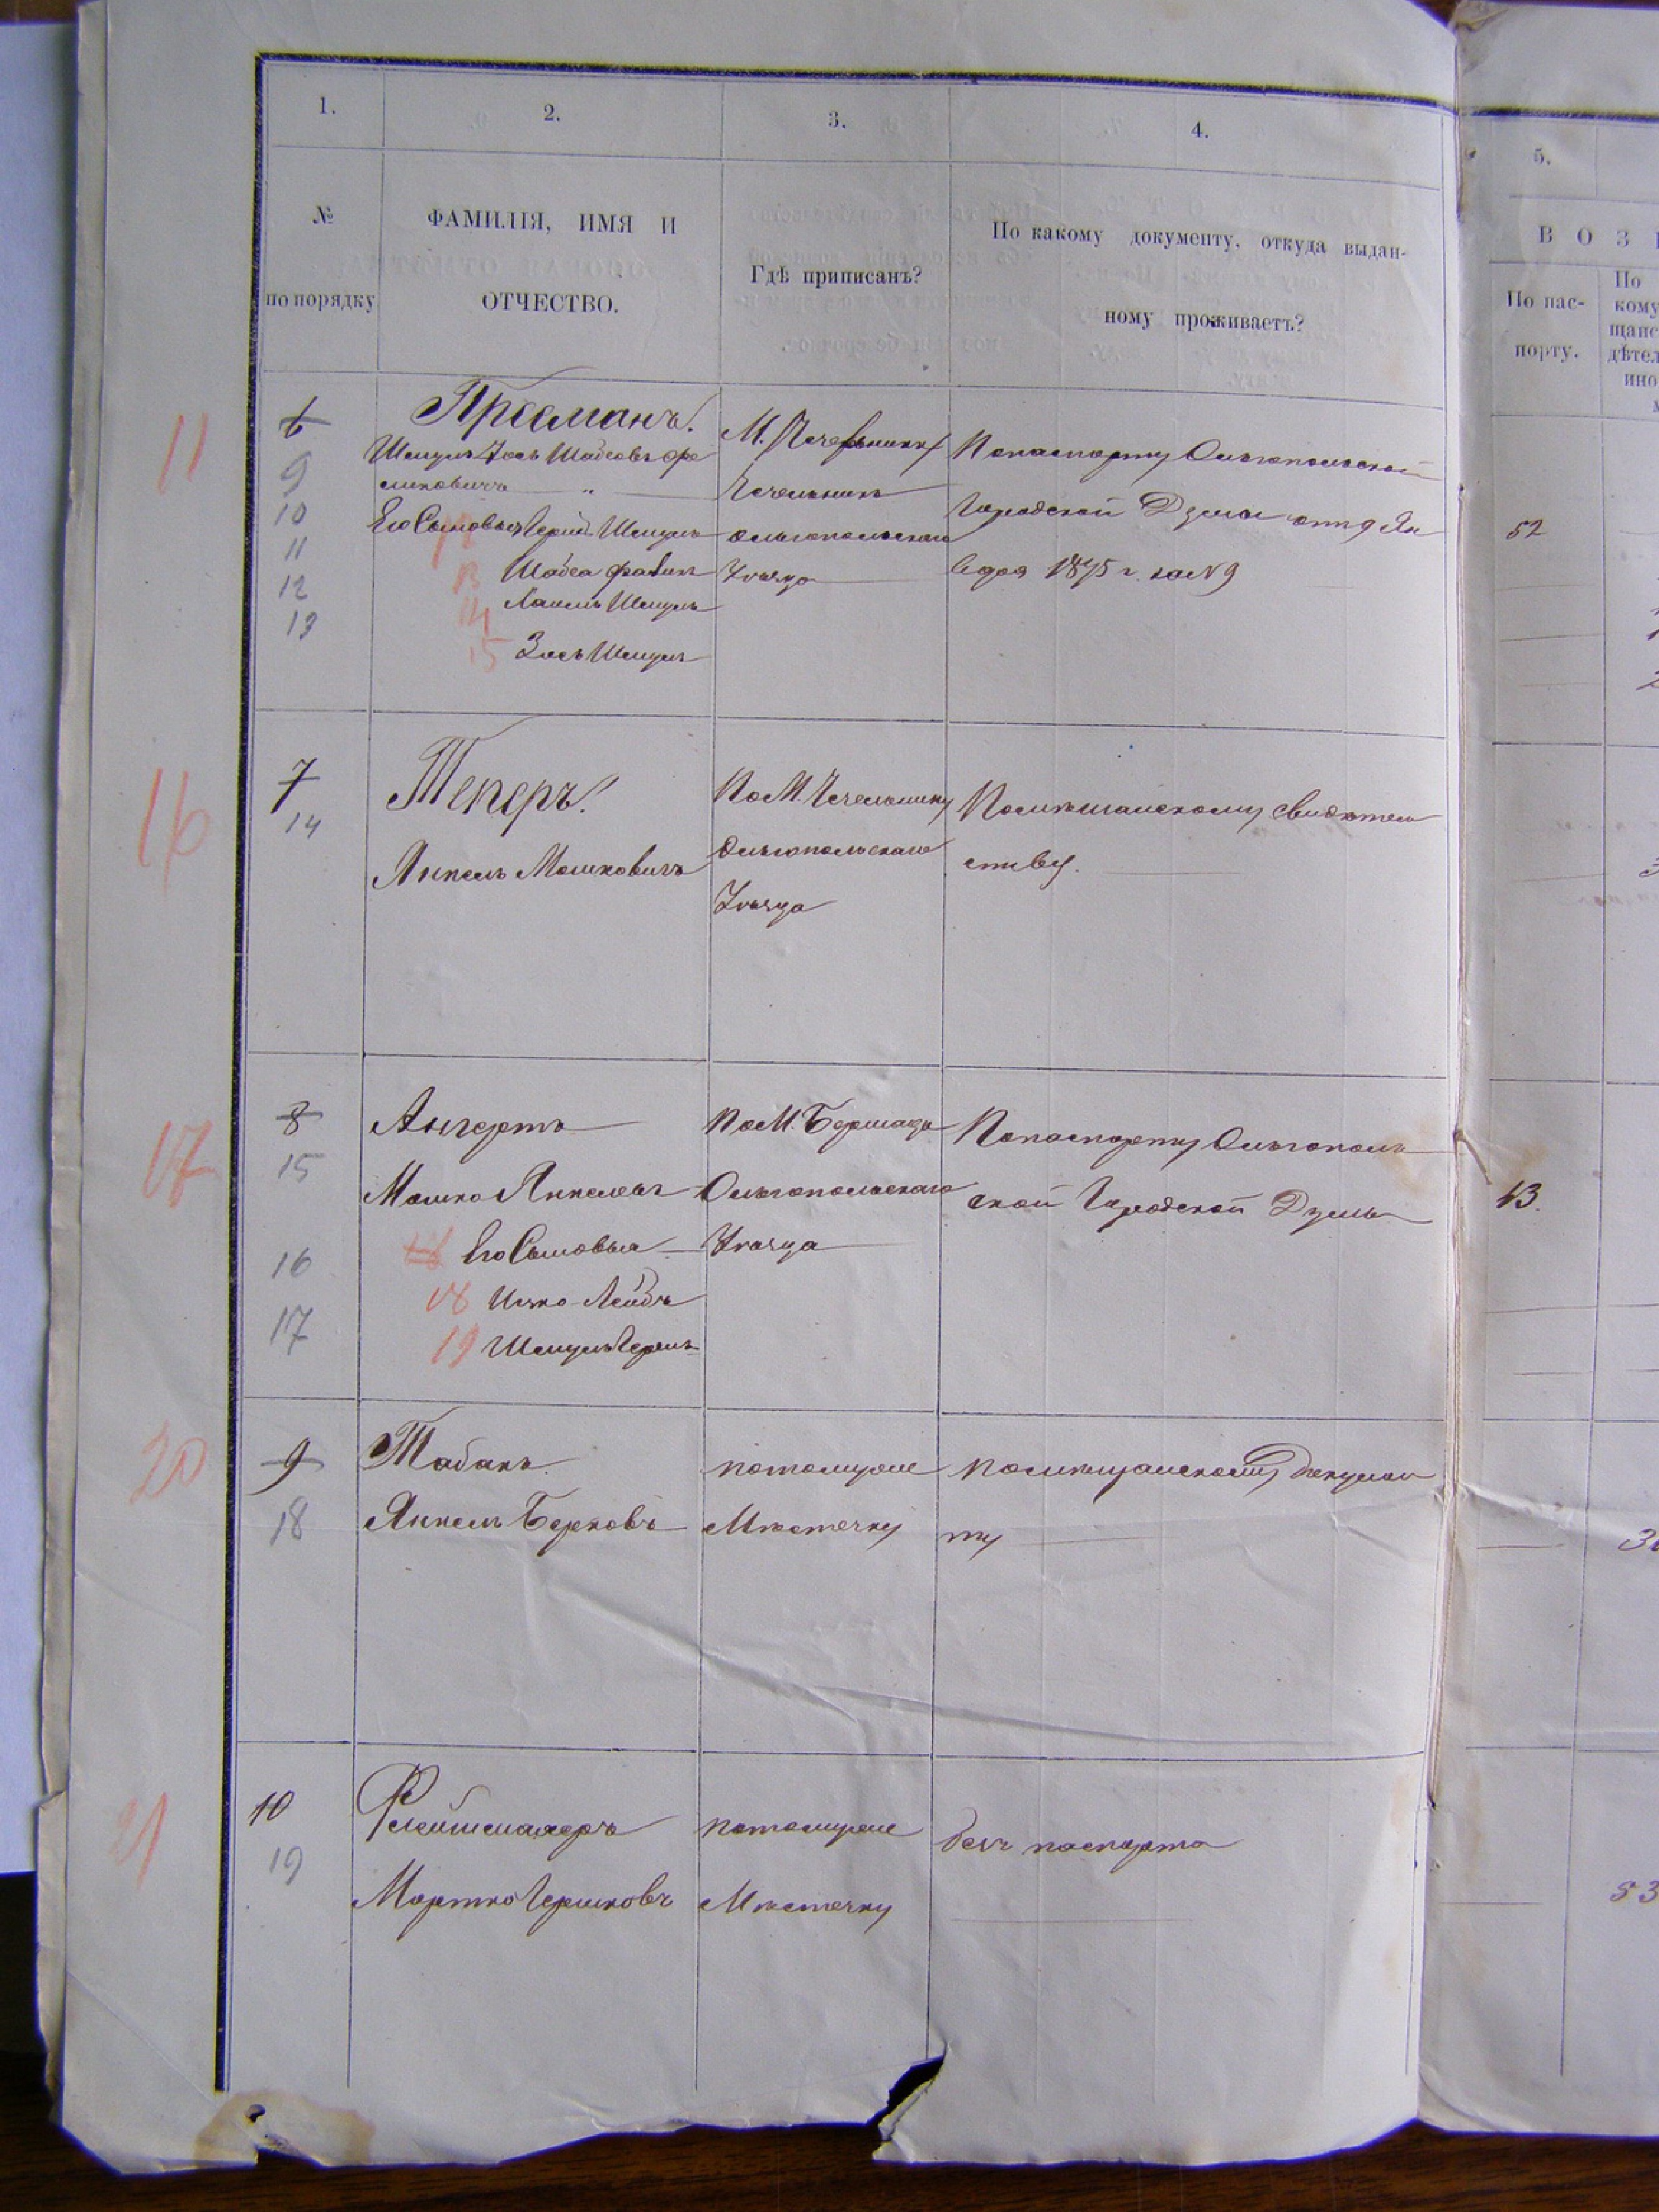 1.
2.
3.
4.
5.
№
по порядку
ФАМИЛІЯ, ИМЯ И
ОТЧЕСТВО.
Гдѣ приписанъ?
По какому документу, откуда выдан-
ному проживаетъ?
В О З
По пас-
порту.
По
кому
щанс
дѣтел
ино
11
6
9
10
11
12
13
Пресманъ.
Шмуль Іось Шабсовъ Фро
имковичъ „
Его Сыновья Герш Шмуль
13 Шабса
14 Хаимъ Шмуль
15 Зось Шмуль
М.
Чечельникъ
Ольгопольскаго
Уѣзда
По паспорту Ольгопольской
Городской Думы отъ 9 Ян
варя 1875 г. за №9
52
16
7
14
Текеръ.
Янкель Мошковичъ
По М. Чечельнику
Ольгопольскаго
Уѣзда
По мѣщанскому свидѣтель
ству.
17
8
15
16
17
Ангертъ
Мошко Янкелевъ
Его Сыновья
18 Ицко-Лейбъ
19 Шмуль Гершъ
По М. Бершадь
Ольгопольскаго
Уѣзда
По паспорту Ольгополь
ской Городской Думы
43.
20
9
18
Табакъ.
Янкель Берковъ
по тому же
Мѣстечку
По мѣщанскому докумен
ту
21
10
19
Флейшмахеръ
Мортко Гершковъ
по тому же
Мѣстечку
безъ паспорта
53